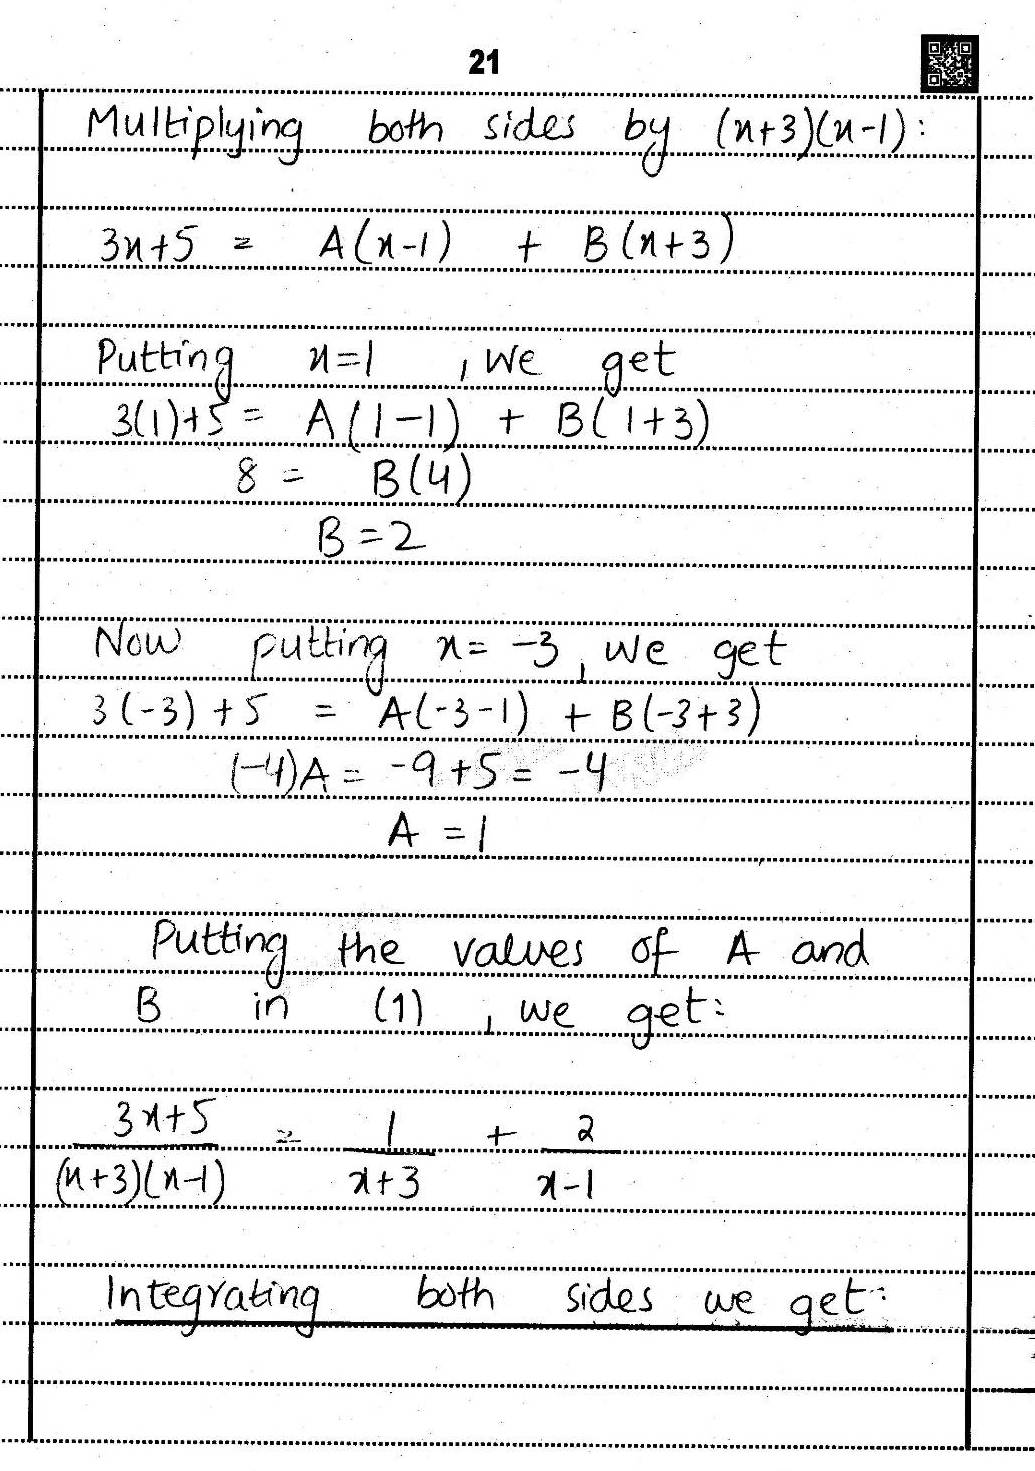 21
Multiplying both sides by (x+3)(x-1):
3x+5 = A(x-1) + B(x+3)
Putting x=1 , we get
3(1)+5 = A(1-1) + B(1+3)
8 = B(4)
B=2
Now putting x= -3, we get
3(-3)+5 = A(-3-1) + B(-3+3)
(-4)A = -9+5 = -4
A =1
Putting the values of A and
B in (1) , we get:
3x+5 = 1 + 2
(x+3)(x-1) x+3 x-1
Integrating both sides we get: